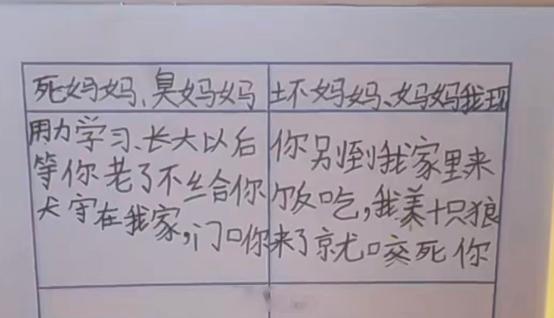 死妈妈、臭妈妈 坏妈妈、妈妈我现
用力学习、长大以后 你别到我家里来
等你老了不给你饭吃，我养十只狼
犬守在我家，门口你来了就咬死你